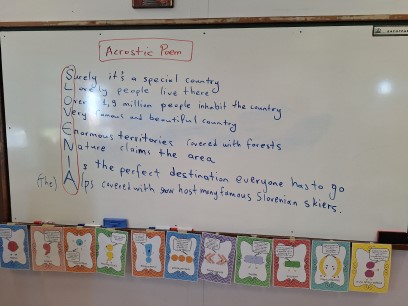 Acrostic Poem
Surely it's a special country
Lovely people live there
Over 1,9 million people inhabit the country
Very famous and beautiful country
Enormous territories covered with forests
Nature claims the area
Is the perfect destination everyone has to go
(The) Alps covered with snow host many famous Slovenian skiers.